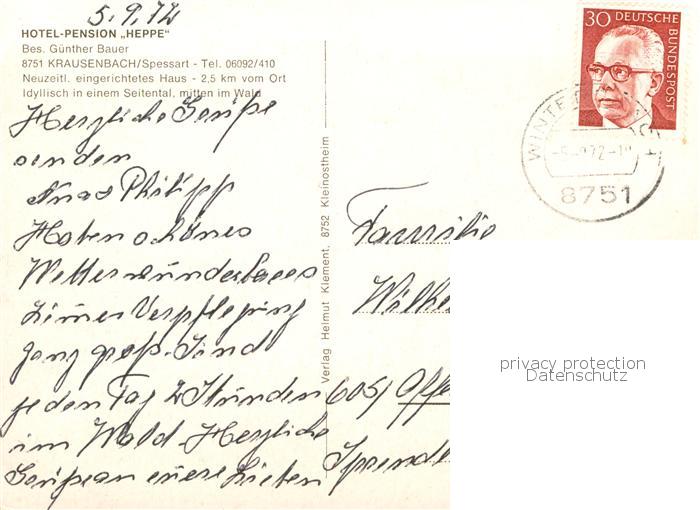 5.9.72
HOTEL-PENSION „HEPPE"
Bes. Günther Bauer
8751 KRAUSENBACH/Spessart - Tel. 06092/410
Neuzeitl. eingerichtetes Haus - 2,5 km vom Ort
Idyllisch in einem Seitental, mitten im Wald
Herzliche Grüße
senden
Philipp
Haben schönes
Wetter wunderbares
Zimer Verpflegung
ganz groß. Sind
jeden Tag 2 Stunden
im Wald. Herzliche
Grüße an euere Lieben
Verlag Helmut Klement, 8752 Kleinostheim
30 DEUTSCHE BUNDESPOST
8751
Familie
Wilhe
605) Offe
Sprendl
privacy protection
Datenschutz